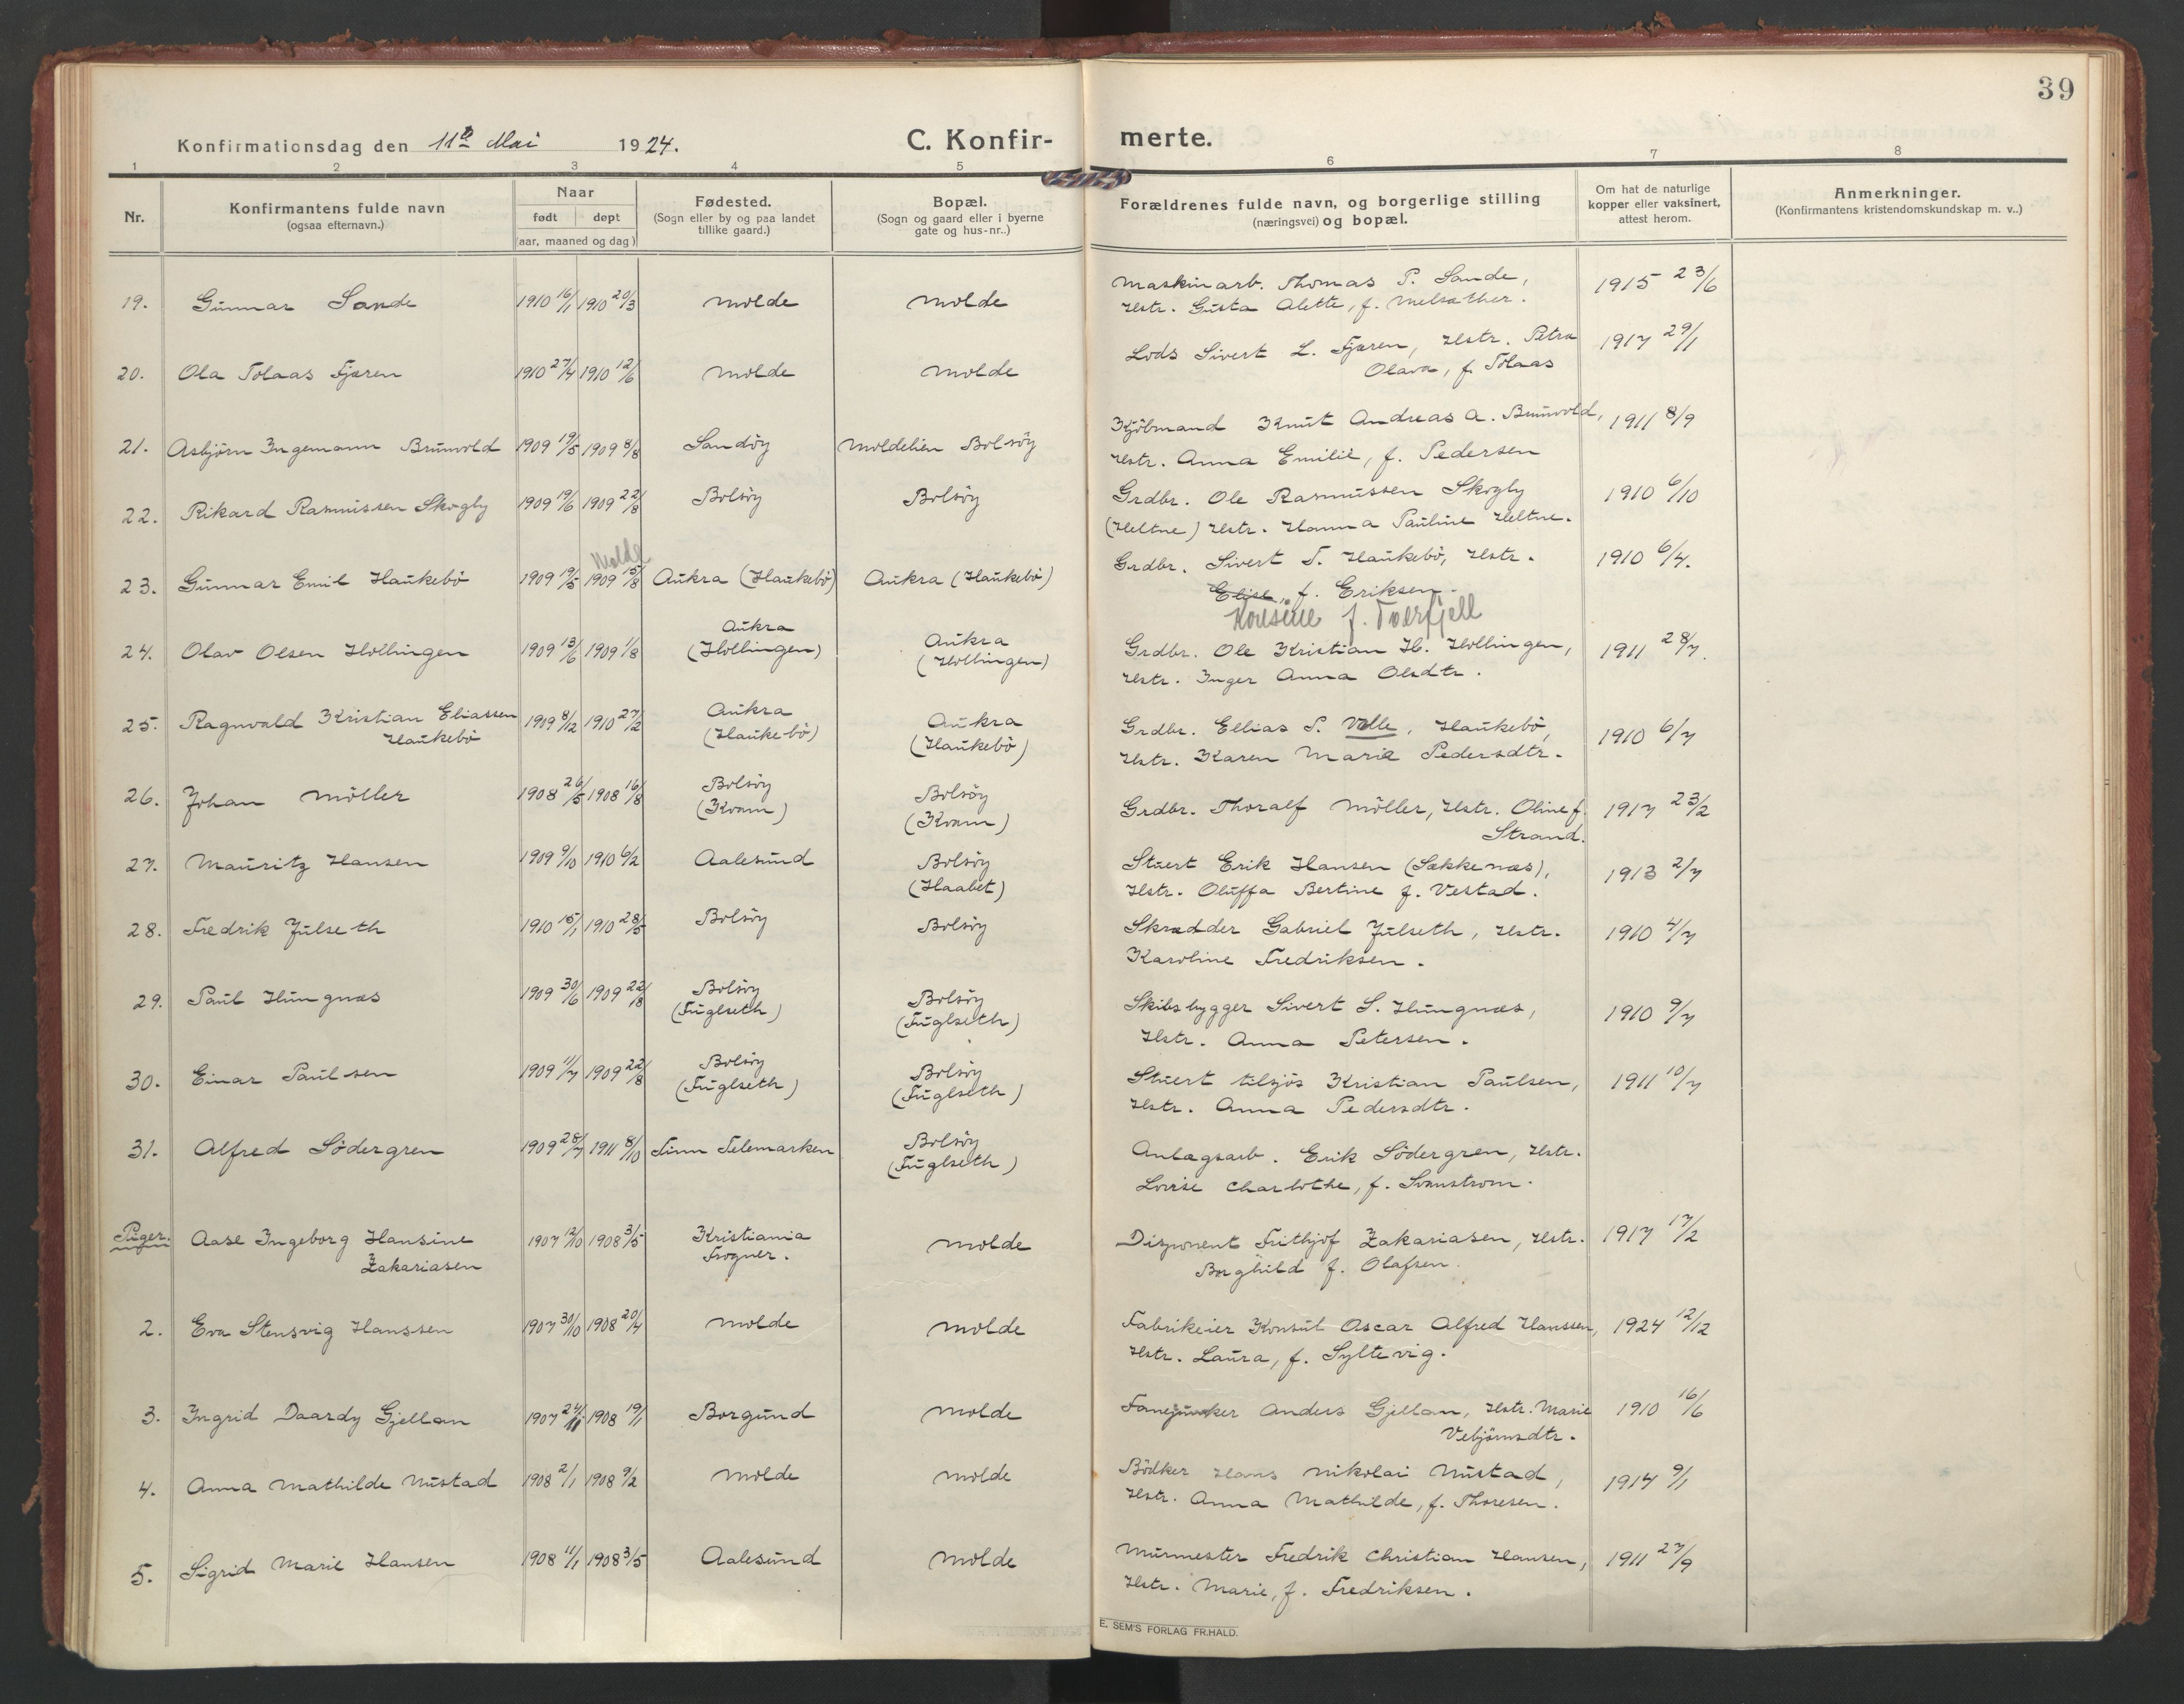 39
Konfirmationsdag den 11te Mai 1924.
C. Konfir-
merte.
1 2 3 4 5 6 7 8
Nr.
Konfirmantens fulde navn
(ogsaa efternavn.)
Naar
født døpt
(aar, maaned og dag)
Fødested.
(Sogn eller by og paa landet
tillike gaard.)
Bopæl.
(Sogn og gaard eller i byerne
gate og hus-nr..)
Forældrenes fulde navn, og borgerlige stilling
(næringsvei) og bopæl.
Om hat de naturlige
kopper eller vaksinert,
attest herom.
Anmerkninger.
(Konfirmantens kristendomskundskap m. v..)
19. Gunnar Sande 1910 16/1 1910 20/3 Molde Molde Maskinarb. Thomas P. Sande, 1915 23/6
Hstr. Gusta Alette, f. Melsæther.
20. Ola Tolaas Fjøren 1910 27/4 1910 12/6 Molde Molde Lods Sivert L. Fjøren, Hstr. Petra 1917 29/1
Olava, f. Tolaas
21. Asbjørn Ingemann Brunvold 1909 19/5 1909 8/8 Sandöy Moldelien Bolsöy Kjöbmand Knut Andreas A. Brunvold, 1911 8/9
Hstr. Anna Emilie, f. Pedersen
22. Rikard Rasmussen Skogly 1909 19/6 1909 22/8 Bolsöy Bolsöy Grdbr. Ole Rasmussen Skogly 1910 6/10
(Heltne) Hstr. Hanna Pauline Heltne.
Molde
23. Gunnar Emil Haukebö 1909 19/5 1909 15/8 Aukra (Haukebö) Aukra (Haukebö) Grdbr. Sivert T. Haukebö, Hstr. 1910 6/4.
Elise, f. Eriksen.
f. Tverfjell
24. Olav Olsen Hollingen 1909 13/6 1909 1/8 Aukra Aukra Grdbr. Ole Kristian H. Hollingen, 1911 28/7.
(Hollingen) (Hollingen) Hstr. Inger Anna Olsdtr.
25. Ragnvald Kristian Eliassen 1909 8/12 1910 27/2 Aukra Aukra Grdbr. Ellias S. Volle, Haukebö, 1910 6/7
Haukebö (Haukebö) (Haukebö) Hstr. Karen Marie Pedersdtr.
26. Johan Möller 1908 26/5 1908 16/8 Bolsöy Bolsöy Grdbr. Thoralf Möller, Hstr. Oline f. 1917 23/2
(Kvam) (Kvam) Strand.
27. Mauritz Hansen 1909 9/10 1910 6/2 Aalesund Bolsöy Stuert Erik Hansen (Sækkenæs), 1913 2/7
(Haabet) Hstr. Oluffa Bertine f. Vestad.
28. Fredrik Julseth 1910 15/1 1910 28/5 Bolsöy Bolsöy Skrædder Gabriel Julseth, Hstr. 1910 4/7
Karoline Fredriksen.
29. Paul Hungnæs 1909 30/6 1909 22/8 Bolsöy Bolsöy Skibsbygger Sivert S. Hungnæs, 1910 9/7
(Fuglseth) (Fuglseth) Hstr. Anna Petersen.
30. Einar Paulsen 1909 11/7 1909 22/8 Bolsöy Bolsöy Stuert tilsjös Kristian Paulsen, 1911 10/7
(Fuglseth) (Fuglseth) Hstr. Anna Pedersdtr.
31. Alfred Södergren 1909 28/7 1911 8/10 Tinn Telemarken Bolsöy Anlægsarb. Erik Södergren, Hstr.
(Fuglseth) Lovise Charlothe, f. Svanstrom.
Piger. Aase Ingeborg Hansine 1907 12/10 1908 3/5 Kristiania Molde Disponent Frithjof Zakariasen, Hstr. 1917 17/2
Zakariasen Frogner. Borghild f. Olafsen.
2. Eva Stensvig Hanssen 1907 30/10 1908 20/4 Molde Molde Fabrikeier Konsul Oscar Alfred Hanssen, 1924 12/12
Hstr. Laura, f. Syltevig.
3. Ingrid Daardy Gjellan 1907 24/11 1908 19/1 Borgund Molde Fanejunker Anders Gjellan, Hstr. Marie 1910 16/6
Vebjörnsdtr.
4. Anna Mathilde Nustad 1908 2/1 1908 9/2 Molde Molde Bödker Hans Nikolai Nustad, 1914 9/1
Hstr. Anna Mathilde, f. Thoresen.
5. Sigrid Marie Hansen 1908 11/1 1908 3/5 Aalesund Molde Murmester Fredrik Christian Hansen, 1911 27/9
Hstr. Marie, f. Fredriksen.
E. SEM'S FORLAG FR.HALD.